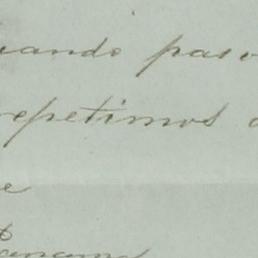 uando paso
repetimos
e